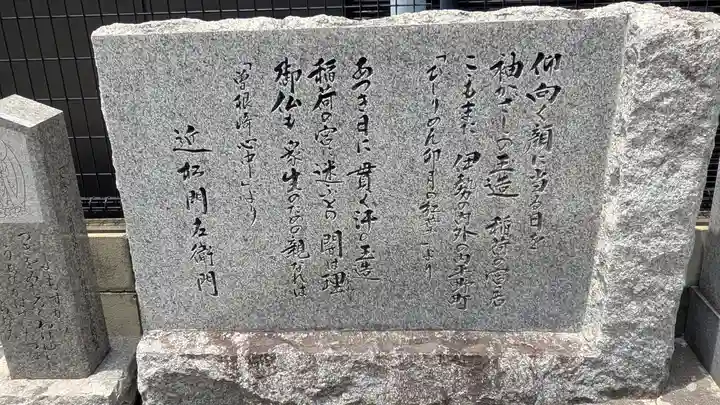 仰向く顔に当る日を
袖がざしの玉造 稲荷の宮居
こゝもまた 伊勢の内外の
「ひぢりめん卯月の紅葉」より
あつき日に 貫く汗の玉造
稲荷の宮に迷ふとの 闇は理
御仏も 衆生のための親なれば
「曽根崎心中」より
近松門左衛門